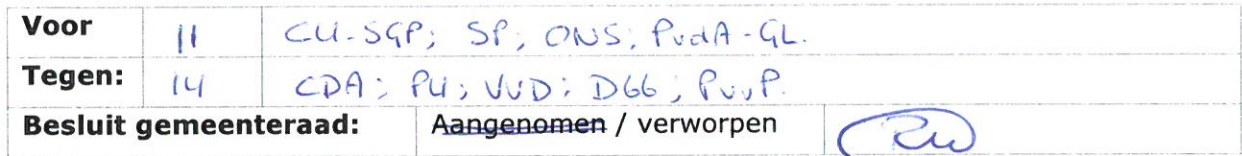 Voor 11 CU-SGP; SP; ONS; PvdA-GL.
Tegen: 14 CDA; PU; VVD; D66; PvvP.
Besluit gemeenteraad: Aangenomen / verworpen